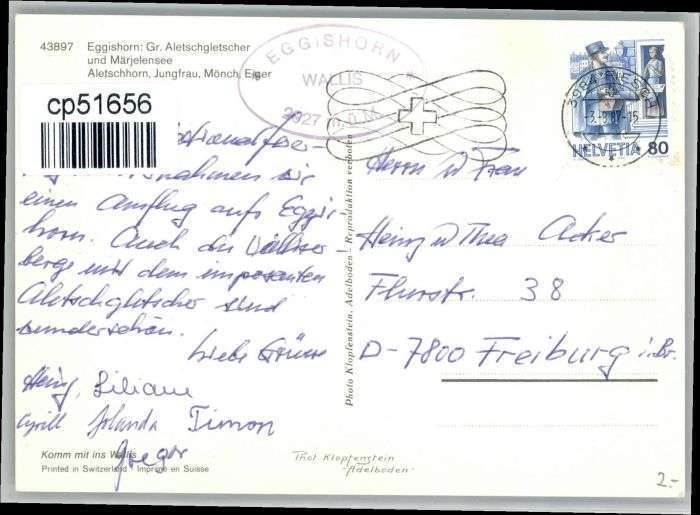 43897 Eggishorn: Gr. Aletschgletscher
und Märjelensee
Aletschhorn, Jungfrau, Mönch, Eiger
EGGISHORN
WALLIS
2927 m ü.M.
3984 FIESCH
HELVETIA 80
cp51656
einen Ausflug aufs Eggis-
horn. Auch die Walliser
berge mit dem imposanten
Aletschgletscher sind
wunderschön.
Liebe Grüsse
Heinz, Liliane
Cyrill Jolanda Timon
Gregor
Komm mit ins Wallis
Printed in Switzerland · Imprimé en Suisse
Photo Klopfenstein, Adelboden - Reproduktion verboten
Herrn u Frau
Heinz u Thea Acker
Flurstr. 38
D-7800 Freiburg i. Br.
Phot Klopfenstein
Adelboden
2.-